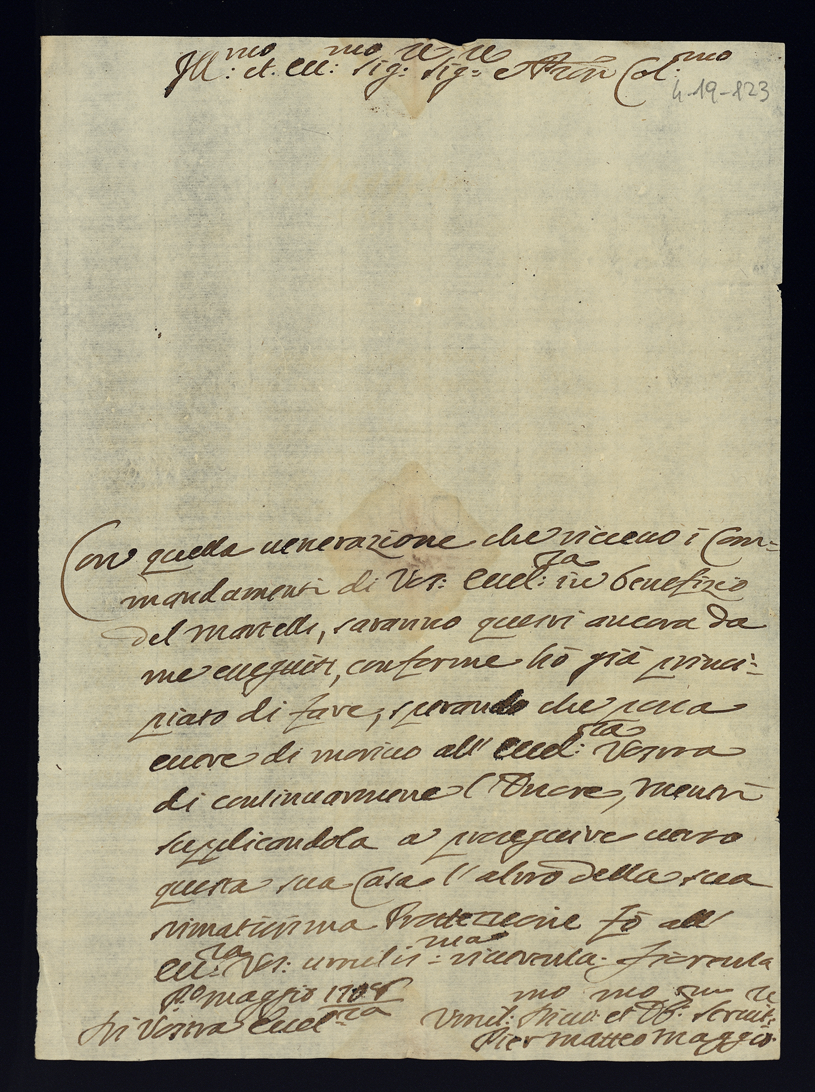 Ill:mo et. Ecc:mo Sig:re Sig:re e Pron Col:mo
4-19-123
Con quella venerazione che ricevo i Com=
mandamenti di Vos: Eccel:za in benefizio
del Martelli, saranno questi ancora da
me eseguiti, conforme hò già princi=
piato di fare, sperando che possa
essere di motivo all' Eccel:za Vostra
di continuarmene l'Onore, mentre
supplicandola a proseguire verso
questa sua Casa l'altro della sua
stimatissima Protezzione fò all'
Ecc:za Vos: umilis:ma riverenza. Fiorenza
maggio
Di Vostra Eccel:za
Umil:mo et Ob:mo Servit:re
Pier Matteo Maggio